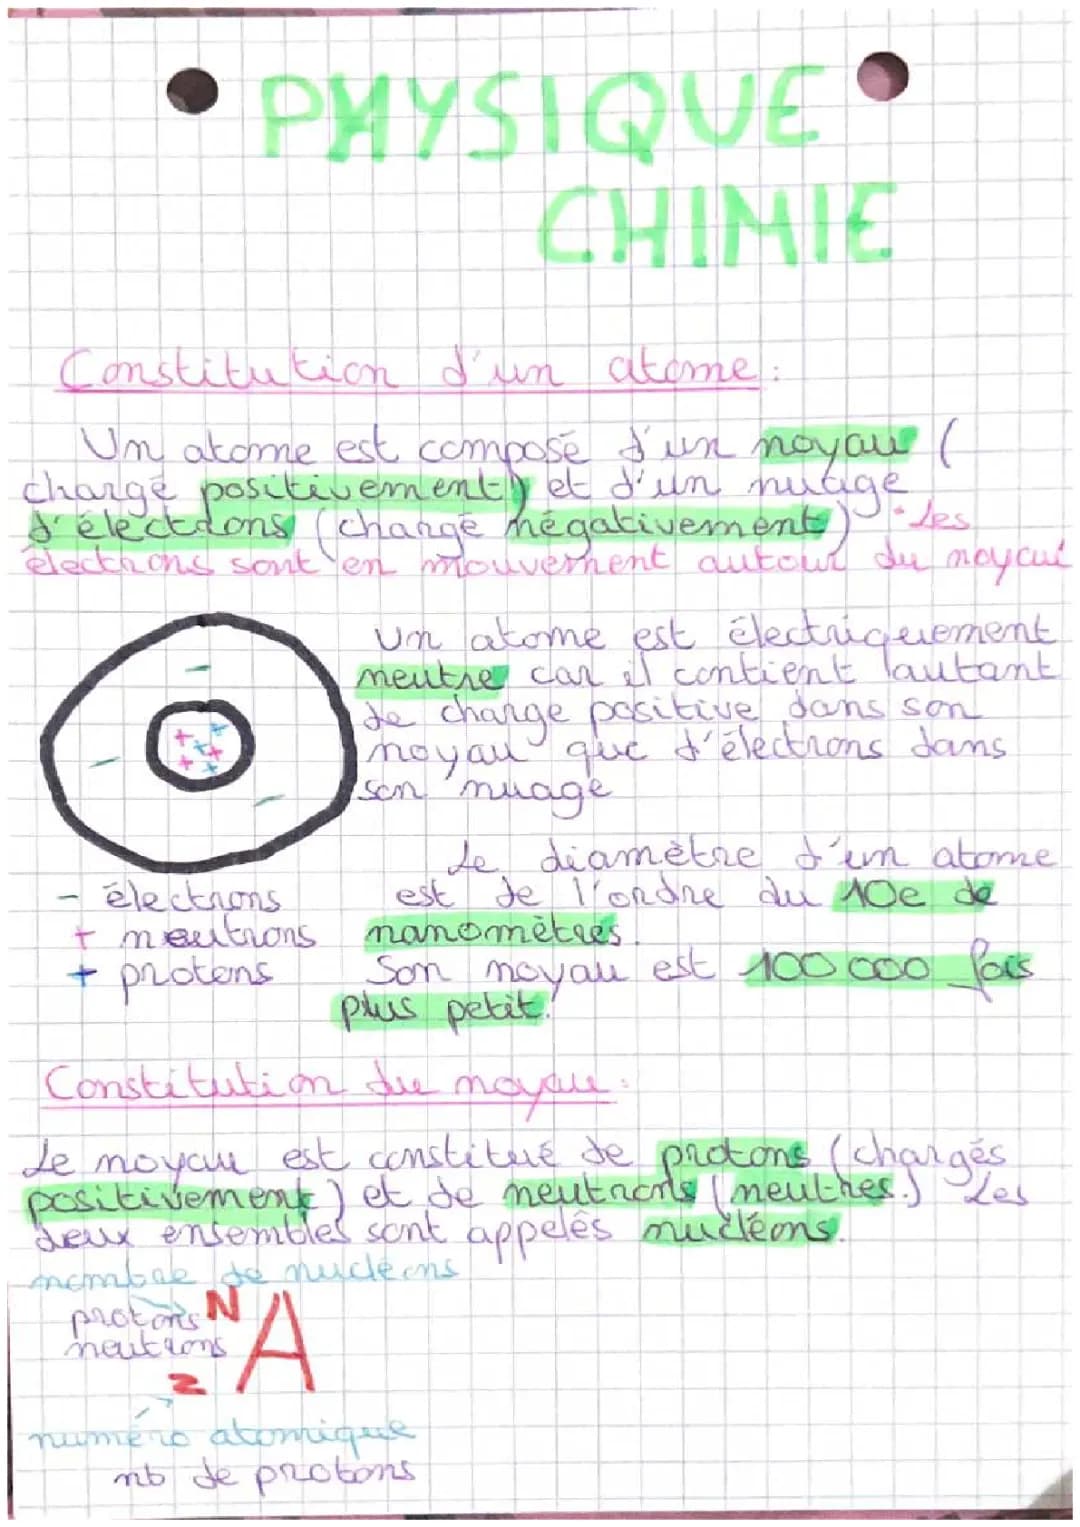 PHYSIQUE
CHIMIE
Constitution d'un atome :
Un atome est composé d'un noyau (
chargé positivement) et d'un nuage
d'électrons (chargé négativement) . Les
électrons sont en mouvement autour du noyau
Un atome est électriquement
neutre car il contient autant
de charge positive dans son
noyau que d'électrons dans
son nuage
Le diamètre d'un atome
est de l'ordre du 10e de
nanomètres.
Son noyau est 100 000 fois
plus petit.
- électrons
+ neutrons
+ protons
Constitution du noyau :
Le noyau est constitué de protons (chargés
positivement) et de neutrons (neutres.) Les
deux ensembles sont appelés nucléons.
nombre de nucléons
protons
neutrons
N
A
Z
numéro atomique
nb de protons